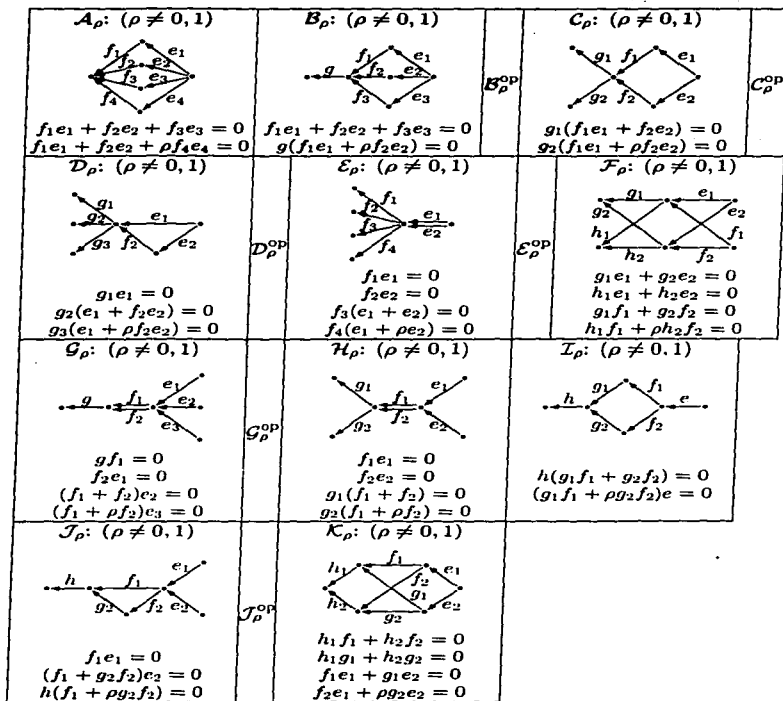 𝒜ρ: (ρ ≠ 0, 1)
f₁ f₂ f₃ f₄ e₁ e₂ e₃ e₄
f₁e₁ + f₂e₂ + f₃e₃ = 0
f₁e₁ + f₂e₂ + ρf₄e₄ = 0
ℬρ: (ρ ≠ 0, 1)
g f₁ f₂ f₃ e₁ e₂ e₃
f₁e₁ + f₂e₂ + f₃e₃ = 0
g(f₁e₁ + ρf₂e₂) = 0
ℬρ^op
𝒞ρ: (ρ ≠ 0, 1)
g₁ g₂ f₁ f₂ e₁ e₂
g₁(f₁e₁ + f₂e₂) = 0
g₂(f₁e₁ + ρf₂e₂) = 0
𝒞ρ^op
𝒟ρ: (ρ ≠ 0, 1)
g₁ g₂ g₃ f₂ e₁ e₂
g₁e₁ = 0
g₂(e₁ + f₂e₂) = 0
g₃(e₁ + ρf₂e₂) = 0
𝒟ρ^op
ℰρ: (ρ ≠ 0, 1)
f₁ f₂ f₃ f₄ e₁ e₂
f₁e₁ = 0
f₂e₂ = 0
f₃(e₁ + e₂) = 0
f₄(e₁ + ρe₂) = 0
ℰρ^op
ℱρ: (ρ ≠ 0, 1)
g₁ g₂ h₁ h₂ e₁ e₂ f₁ f₂
g₁e₁ + g₂e₂ = 0
h₁e₁ + h₂e₂ = 0
g₁f₁ + g₂f₂ = 0
h₁f₁ + ρh₂f₂ = 0
𝒢ρ: (ρ ≠ 0, 1)
g f₁ f₂ e₁ e₂ e₃
gf₁ = 0
f₂e₁ = 0
(f₁ + f₂)e₂ = 0
(f₁ + ρf₂)e₃ = 0
𝒢ρ^op
ℋρ: (ρ ≠ 0, 1)
g₁ g₂ f₁ f₂ e₁ e₂
f₁e₁ = 0
f₂e₂ = 0
g₁(f₁ + f₂) = 0
g₂(f₁ + ρf₂) = 0
ℐρ: (ρ ≠ 0, 1)
h g₁ g₂ f₁ f₂ e
h(g₁f₁ + g₂f₂) = 0
(g₁f₁ + ρg₂f₂)e = 0
𝒥ρ: (ρ ≠ 0, 1)
h f₁ g₂ f₂ e₁ e₂
f₁e₁ = 0
(f₁ + g₂f₂)e₂ = 0
h(f₁ + ρg₂f₂) = 0
𝒥ρ^op
𝒦ρ: (ρ ≠ 0, 1)
h₁ h₂ f₁ f₂ g₁ g₂ e₁ e₂
h₁f₁ + h₂f₂ = 0
h₁g₁ + h₂g₂ = 0
f₁e₁ + g₁e₂ = 0
f₂e₁ + ρg₂e₂ = 0